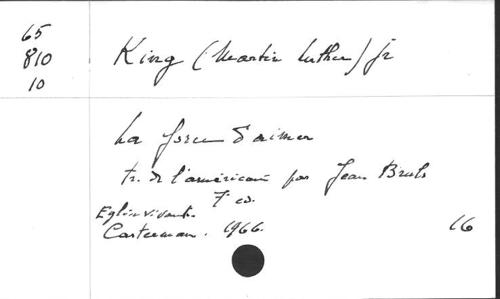 65
810
10
King (Martin Luther) jr
La force d'aimer
tr. de l'américain par Jean Bruls
7 ed.
Eglise vivante.
Casterman. 1966.
16